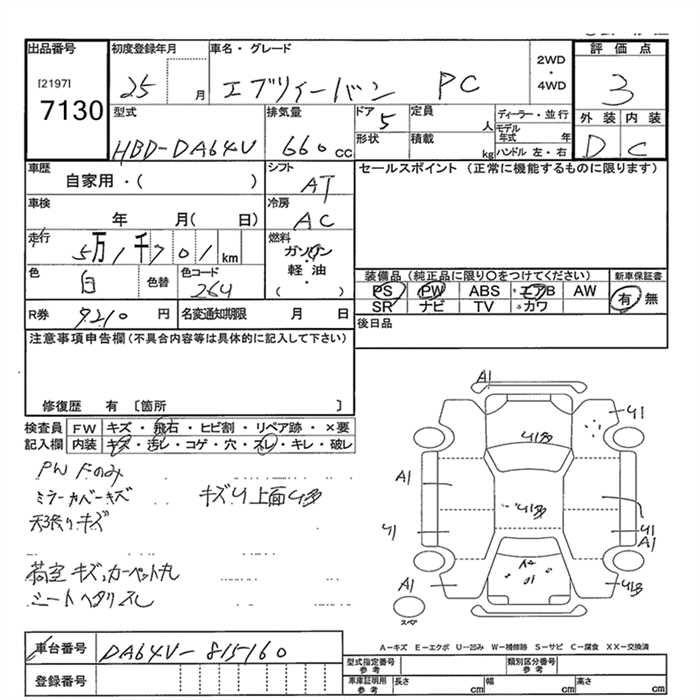 出品番号 初度登録年月 車名・グレード 2WD ・ 4WD 評価点
[2197] 7130 25 月 エブリイーバン PC 3
型式 排気量 ドア 5 定員 人 ディーラー・並行 外装 内装
HBD-DA64V 660 cc 形状 積載 kg モデル年式 年 ハンドル 左・右 D C
車歴 自家用・( ) シフト AT セールスポイント (正常に機能するものに限ります)
車検 年 月( 日) 冷房 AC
走行 5万1千701km 燃料 ガソリン・軽・油 ( )
色 白 色替 色コード 26U 装備品 (純正品に限り〇をつけてください) 新車保証書
PS PW ABS エアB AW 有・無
SR ナビ TV カワ
R券 9210 円 名変通知期限 月 日 後日品
注意事項申告欄(不具合内容等は具体的に記入して下さい)
修復歴 有 〔箇所 〕
検査員 FW キズ・飛石・ヒビ割・リペア跡・×要
記入欄 内装 キズ・汚レ・コゲ・穴・スレ・キレ・破レ
PW Fのみ
ミラーカバーキズ キズU上面U多
天張りキズ
荷室キズ、カーペット丸
シートヘタリスレ
A1 U1
U1多
A1 U1多
U1 U1 A1
A1 U1多
スペア
A-キズ E-エクボ U-凹み W-補修跡 S-サビ C-腐食 XX-交換済
車台番号 DA64V-815160
登録番号
型式指定番号 参考 類別区分番号 参考
車庫証明用 参考 長さ cm 幅 cm 高さ cm